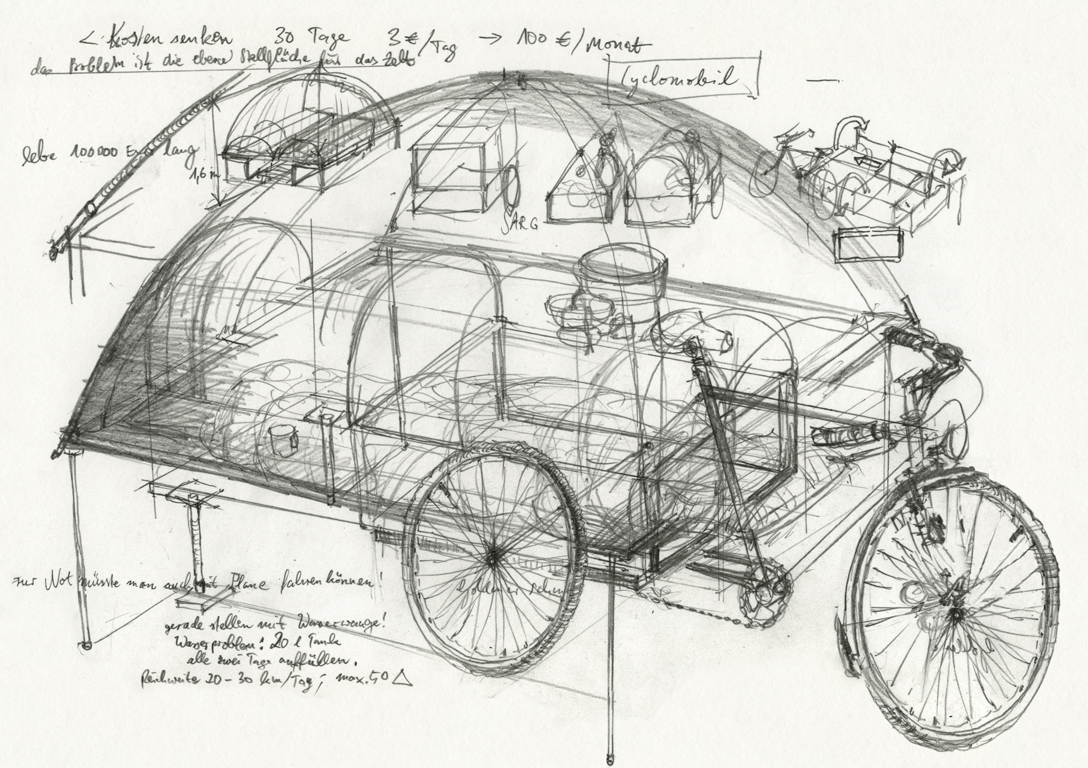 < Kosten senken 30 Tage 3 €/Tag → 100 €/Monat
das Problem ist die ebene Stellfläche für das Zelt!
Cyclomobil
lebe 100000 Euro lang
1,6 m
SARG
zur Not müsste man auch mit Plane fahren können!
gerade stellen mit Wasserwaage!
Wasserproblem: 20 l Tank
alle zwei Tage auffüllen.
Reichweite 20 – 30 km/Tag; max. 50